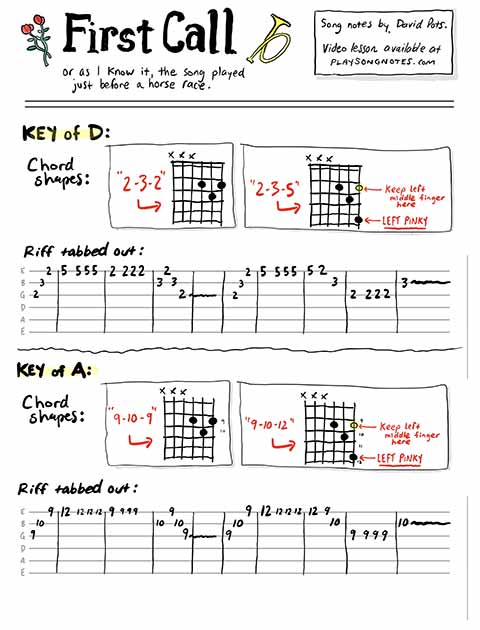 First Call
or as I know it, the song played
just before a horse race.
Song notes by David Pots.
Video lesson available at
PLAYSONGNOTES.com
KEY of D:
Chord
shapes:
x x x
"2-3-2"
x x x
"2-3-5"
Keep left
middle finger
here
LEFT PINKY
Riff tabbed out:
E 2 5 5 5 5 2 2 2 2 2 2 5 5 5 5 5 2
B 3 3 3 3 3 3
G 2 2 2 2 2 2 2
D
A
E
KEY of A:
Chord
shapes:
x x x
"9-10-9"
9
10
x x x
"9-10-12"
9
10
11
12
Keep left
middle finger
here
LEFT PINKY
Riff tabbed out:
E 9 12 12 12 12 9 9 9 9 9 9 12 12 12 12 12 9
B 10 10 10 10 10 10
G 9 9 9 9 9 9 9
D
A
E